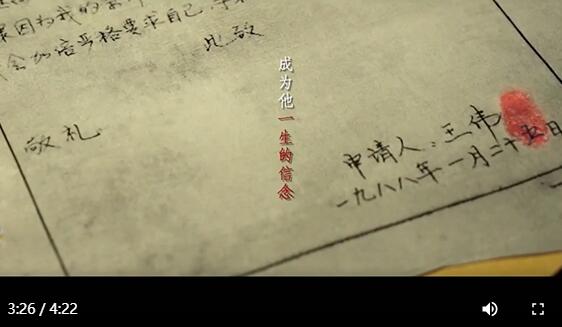 因为我的
会加倍严格要求自己
此致
成为他一生的信念
敬礼
申请人：王伟
一九八八年一月二十五日
3:26 / 4:22